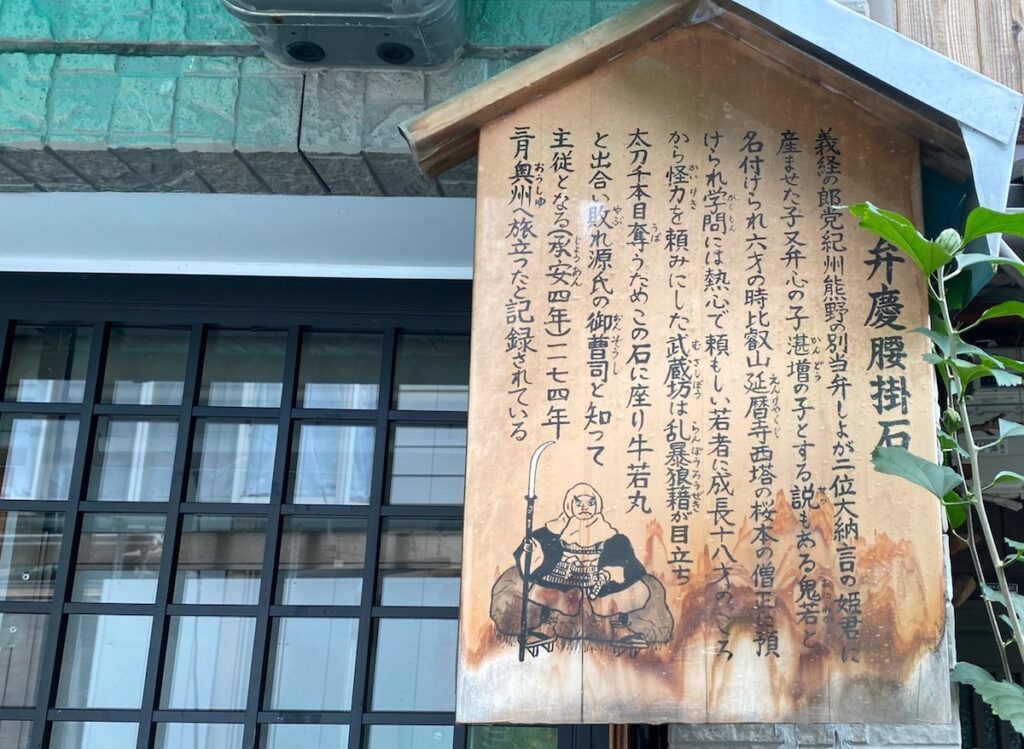 弁慶腰掛石
義経の郎党紀州熊野の別当弁しよが二位大納言の姫君に
産ませた子又弁心の子湛増の子とする説もある鬼若と
名付けられ六才の時比叡山延暦寺西塔の桜本の僧正に預
けられ学問には熱心で頼もしい若者に成長十八才のころ
から怪力を頼みにした武蔵坊は乱暴狼藉が目立ち
太刀千本目奪うためこの石に座り牛若丸
と出合い敗れ源氏の御曹司と知って
主従となる(承安四年)一一七四年
三月奥州へ旅立ったと記録されている